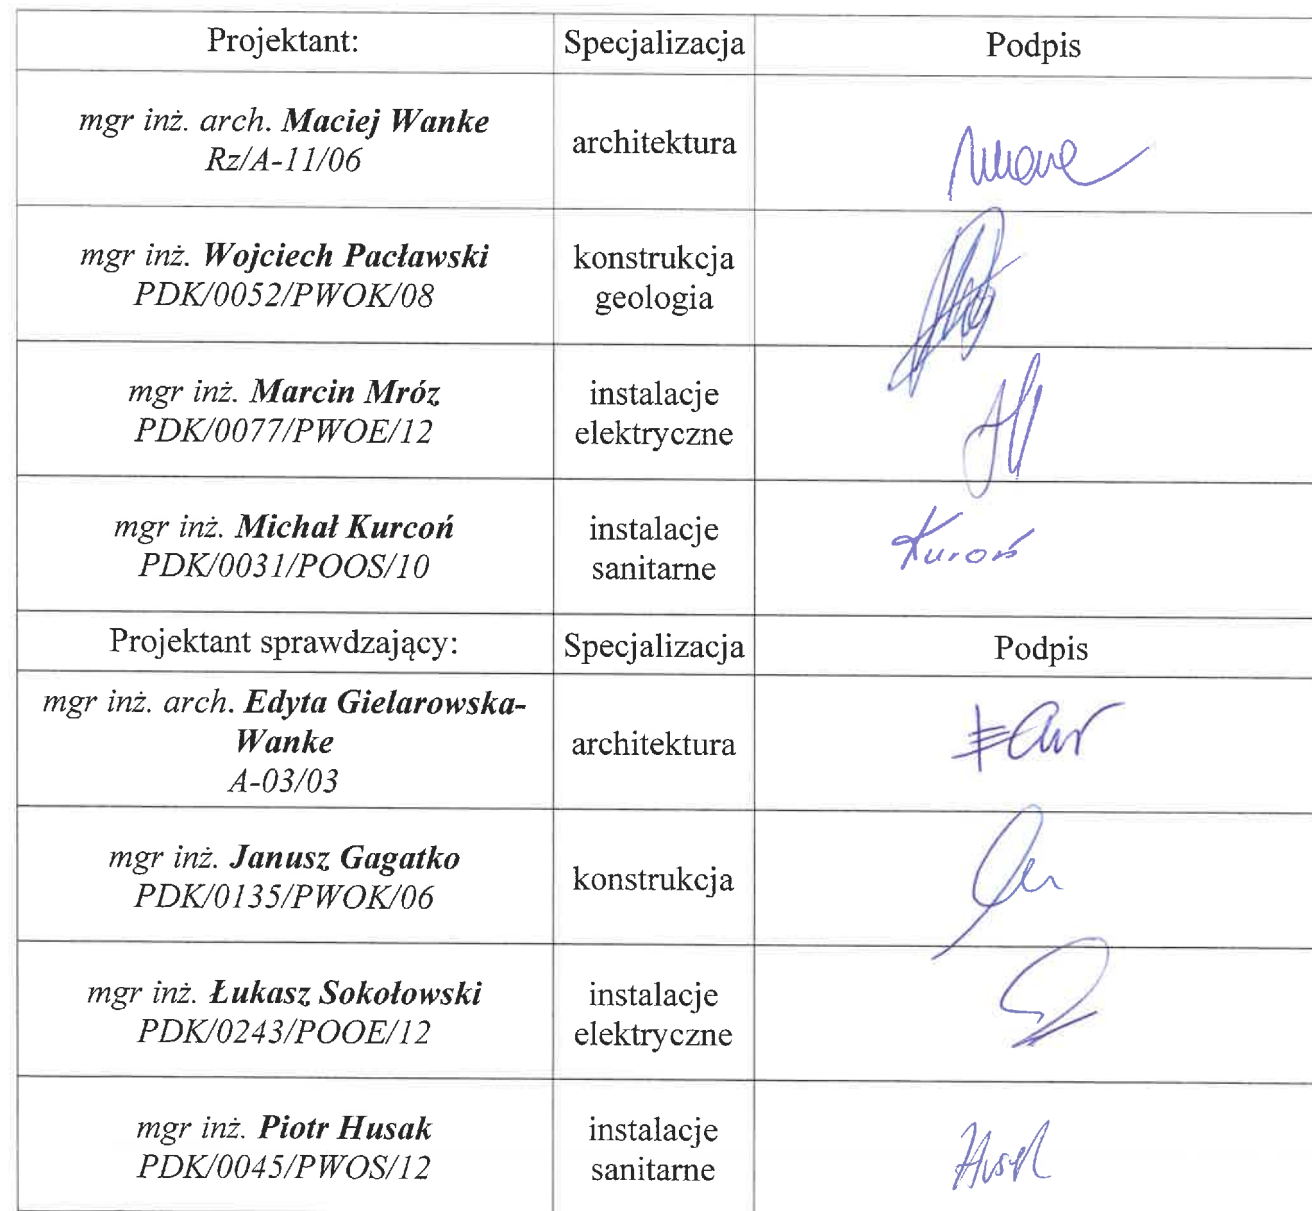 Projektant: Specjalizacja Podpis
mgr inż. arch. Maciej Wanke
Rz/A-11/06
architektura
mgr inż. Wojciech Pacławski
PDK/0052/PWOK/08
konstrukcja
geologia
mgr inż. Marcin Mróz
PDK/0077/PWOE/12
instalacje
elektryczne
mgr inż. Michał Kurcoń
PDK/0031/POOS/10
instalacje
sanitarne
Kuroń
Projektant sprawdzający: Specjalizacja Podpis
mgr inż. arch. Edyta Gielarowska-
Wanke
A-03/03
architektura
mgr inż. Janusz Gagatko
PDK/0135/PWOK/06
konstrukcja
mgr inż. Łukasz Sokołowski
PDK/0243/POOE/12
instalacje
elektryczne
mgr inż. Piotr Husak
PDK/0045/PWOS/12
instalacje
sanitarne
Husak